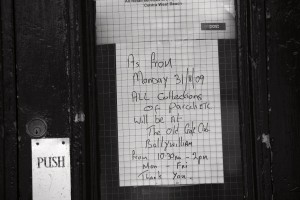 As From
Monday 31/8/09
ALL Collections
OF
Will be At
The Old Golf Club
Ballywilliam
From 10:30am - 2pm
Mon - Fri
Thank You
PUSH